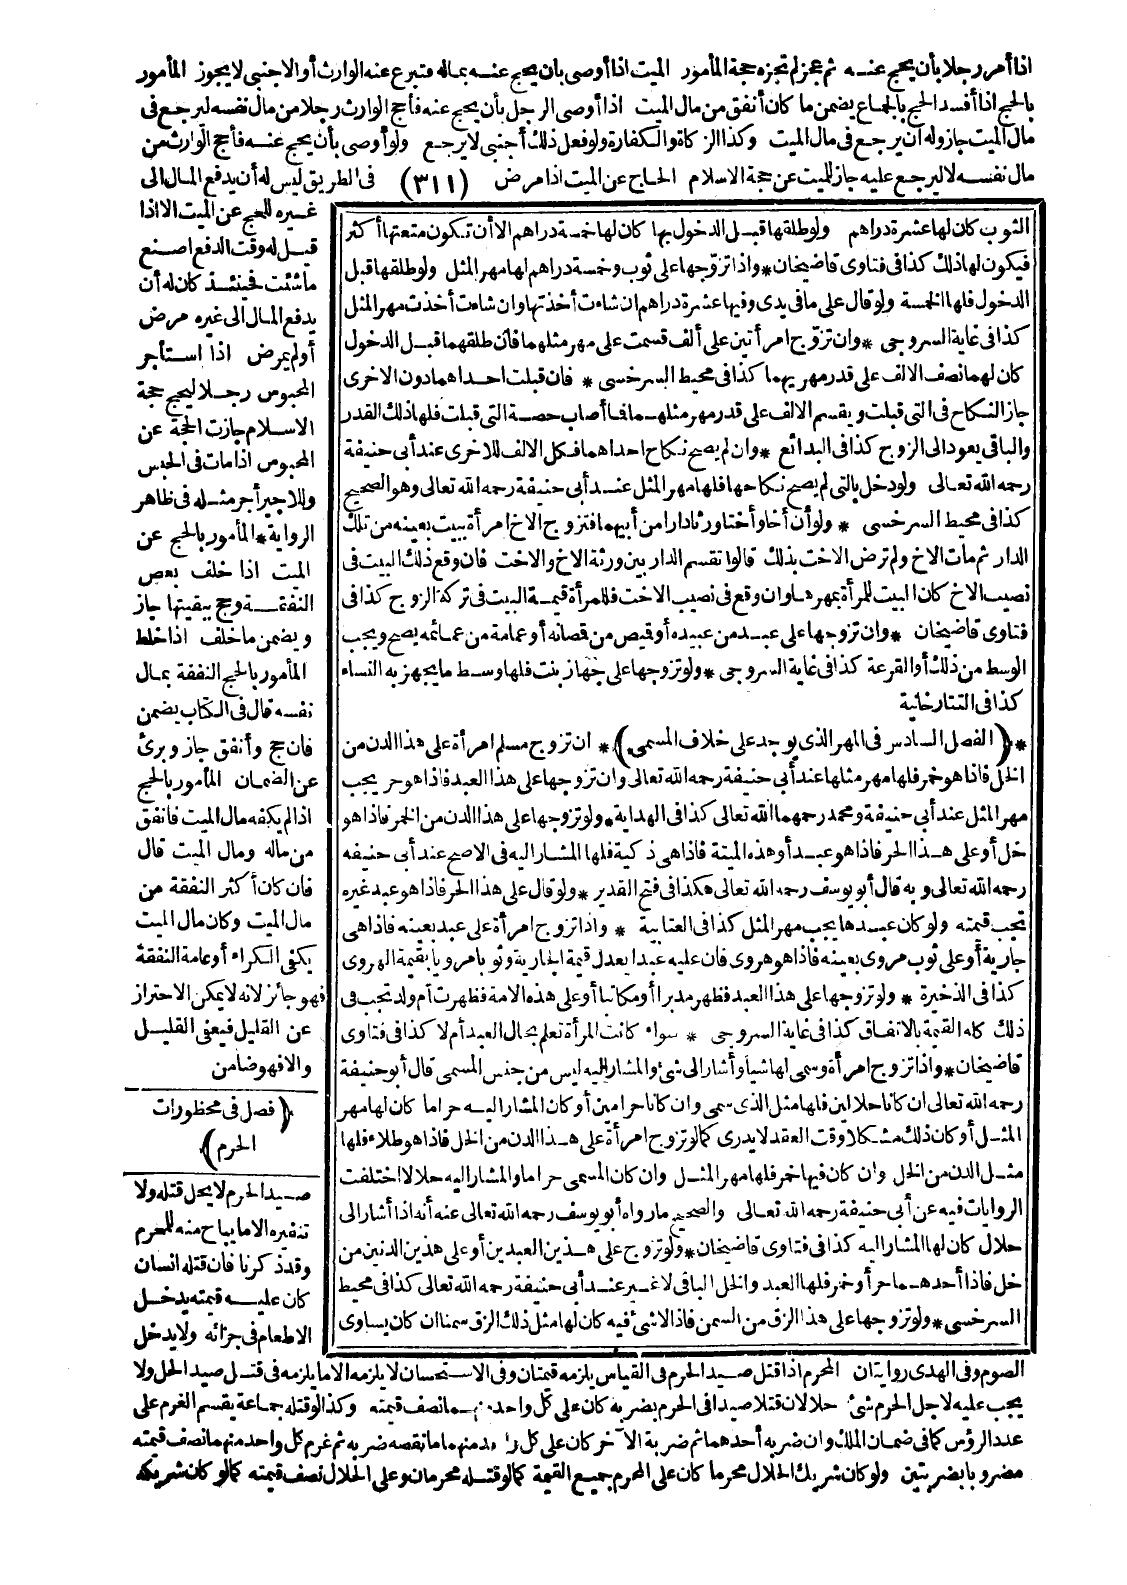 اذا أمر رجلا بأن يحج عنه ثم عجز لم تجزه حجة المأمور الميت اذا أوصى بأن يحج عنه بماله فتبرع عنه الوارث أو الاجنبى لا يجوز المأمور
بالحج اذا أفسد الحج بالجماع يضمن ما كان أنفق من مال الميت اذا أوصى الرجل بأن يحج عنه فأحج الوارث رجلا من مال نفسه ليرجع فى
مال الميت جاز وله أن يرجع فى مال الميت وكذا الزكاة والكفارة ولو فعل ذلك أجنبى لا يرجع ولو أوصى بأن يحج عنه فأحج الوارث من
مال نفسه لا ليرجع عليه جاز للميت عن حجة الاسلام الحاج عن الميت اذا مرض (٣١١) فى الطريق ليس له أن يدفع المال الى
غيره للحج عن الميت الا اذا
قيل له وقت الدفع اصنع
ما شئت فحينئذ كان له أن
يدفع المال الى غيره مرض
أو لم يمرض اذا استأجر
المحبوس رجلا ليحج حجة
الاسلام جازت الحجة عن
المحبوس اذا مات فى الحبس
وللاجير أجر مثله فى ظاهر
الرواية * المأمور بالحج عن
الميت اذا خلف بعض
النفقة وحج ببقيتها جاز
ويضمن ما خلف اذا خلط
المأمور بالحج النفقة بمال
نفسه قال فى الكتاب يضمن
فان حج وأنفق جاز وبرئ
عن الضمان المأمور بالحج
اذا لم يكفه مال الميت فأنفق
من ماله ومال الميت قال
فان كان أكثر النفقة من
مال الميت وكان مال الميت
يكفى الكراء أو عامة النفقة
فهو جائز لانه لا يمكن الاحتراز
عن القليل فيعفى القليل
والا فهو ضامن
(فصل فى محظورات
الحرم)
صيد الحرم لا يحل قتله ولا
تنفيره الا ما يباح منه للمحرم
وقد ذكرنا فان قتله انسان
كان عليه قيمته يدخل
الاطعام فى جزائه ولا يدخل
الثوب كان لها عشرة دراهم ولو طلقها قبل الدخول بها كان لها خمسة دراهم الا أن تكون متعتها أكثر
فيكون لها ذلك كذا فى فتاوى قاضيخان * واذا تزوجها على ثوب وخمسة دراهم لها مهر المثل ولو طلقها قبل
الدخول فلها الخمسة ولو قال على ما فى يدى وفيها عشرة دراهم ان شاءت أخذتها وان شاءت أخذت مهر المثل
كذا فى غاية السروجى * وان تزوج امرأتين على ألف قسمت على مهر مثلهما فان طلقهما قبل الدخول
كان لهما نصف الالف على قدر مهريهما كذا فى محيط السرخسى * فان قبلت احداهما دون الاخرى
جاز النكاح فى التى قبلت ويقسم الالف على قدر مهر مثلهما فما أصاب حصة التى قبلت فلها ذلك القدر
والباقى يعود الى الزوج كذا فى البدائع * وان لم يصح نكاح احداهما فكل الالف للاخرى عند أبى حنيفة
رحمه الله تعالى ولو دخل بالتى لم يصح نكاحها فلها مهر المثل عند أبى حنيفة رحمه الله تعالى وهو الصحيح
كذا فى محيط السرخسى * ولو أن أخا وأختا ورثا دارا من أبيهما فتزوج الاخ امرأة ببيت بعينه من تلك
الدار ثم مات الاخ ولم ترض الاخت بذلك قالوا تقسم الدار بين ورثة الاخ والاخت فان وقع ذلك البيت فى
نصيب الاخ كان البيت للمرأة بمهرها وان وقع فى نصيب الاخت فللمرأة قيمة البيت فى تركة الزوج كذا فى
فتاوى قاضيخان * وان تزوجها على عبد من عبيده أو قميص من قمصانه أو عمامة من عمائمه يصح ويجب
الوسط من ذلك أو القرعة كذا فى غاية السروجى * ولو تزوجها على جهاز بنت فلها وسط ما يجهز به النساء
كذا فى التتارخانية
* (الفصل السادس فى المهر الذى يوجد على خلاف المسمى) * ان تزوج مسلم امرأة على هذا الدن من
الخل فاذا هو خمر فلها مهر مثلها عند أبى حنيفة رحمه الله تعالى وان تزوجها على هذا العبد فاذا هو حر يجب
مهر المثل عند أبى حنيفة ومحمد رحمهما الله تعالى كذا فى الهداية * ولو تزوجها على هذا الدن من الخمر فاذا هو
خل أو على هذا الحر فاذا هو عبد أو هذه الميتة فاذا هى ذكية فلها المشار اليه فى الاصح عند أبى حنيفة
رحمه الله تعالى وبه قال أبو يوسف رحمه الله تعالى هكذا فى فتح القدير * ولو قال على هذا الحر فاذا هو عبد غيره
تجب قيمته ولو كان عبدها يجب مهر المثل كذا فى العتابية * واذا تزوج امرأة على عبد بعينه فاذا هى
جارية أو على ثوب مروى بعينه فاذا هو هروى فان عليه عبدا يعدل قيمة الجارية وثوبا مرويا بقيمة الهروى
كذا فى الذخيرة * ولو تزوجها على هذا العبد فظهر مدبرا أو مكاتبا أو على هذه الامة فظهرت أم ولد تجب فى
ذلك كله القيمة بالاتفاق كذا فى غاية السروجى * سواء كانت المرأة تعلم بحال العبد أم لا كذا فى فتاوى
قاضيخان * واذا تزوج امرأة وسمى لها شيأ وأشار الى شئ والمشار اليه ليس من جنس المسمى قال أبو حنيفة
رحمه الله تعالى ان كانا حلالين فلها مثل الذى سمى وان كانا حرامين أو كان المشار اليه حراما كان لها مهر
المثل أو كان ذلك مشكلا وقت العقد لا يدرى كما لو تزوج امرأة على هذا الدن من الخل فاذا هو طلاء فلها
مثل الدن من الخل وان كان فيها خمر فلها مهر المثل وان كان المسمى حراما والمشار اليه حلالا اختلفت
الروايات فيه عن أبى حنيفة رحمه الله تعالى والصحيح ما رواه أبو يوسف رحمه الله تعالى عنه أنه اذا أشار الى
حلال كان لها المشار اليه كذا فى فتاوى قاضيخان * ولو تزوج على هذين العبدين أو على هذين الدنين من
خل فاذا أحدهما حر أو خمر فلها العبد والخل الباقى لا غير عند أبى حنيفة رحمه الله تعالى كذا فى محيط
السرخسى * ولو تزوجها على هذا الزق من السمن فاذا لا شئ فيه كان لها مثل ذلك الزق سمنا ان كان يساوى
الصوم وفى الهدى روايتان المحرم اذا قتل صيد الحرم فى القياس يلزمه قيمتان وفى الاستحسان لا يلزمه الا ما يلزمه فى قتل صيد الحل ولا
يجب عليه لاجل الحرم شئ حلالان قتلا صيدا فى الحرم بضربة كان على كل واحد منهما نصف قيمته وكذا لو قتله جماعة يقسم الغرم على
عدد الرؤس كما فى ضمان الملك وان ضربه أحدهما ثم ضربه الآخر كان على كل واحد منهما ما نقصه ضربه ثم غرم كل واحد منهما نصف قيمته
مضروبا بضربتين ولو كان شريك الحلال محرما كان على المحرم جميع القيمة كما لو قتله محرمان وعلى الحلال نصف قيمته كما لو كان شريكه